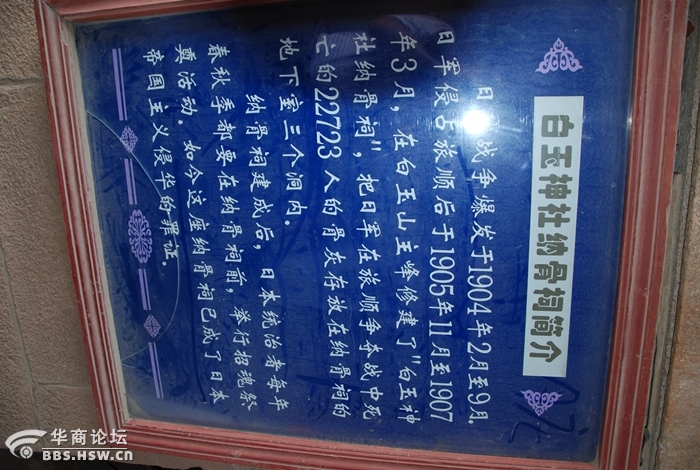 白玉神社纳骨祠简介
日 战争爆发于1904年2月至9月.
日军侵占旅顺后于1905年11月至1907
年3月，在白玉山主峰修建了"白玉神
社纳骨祠"，把日军在旅顺争夺战中死
亡的22723人的骨灰存放在纳骨祠的
地下室三个洞内。
纳骨祠建成后，日本统治者每年
春秋季都要在纳骨祠前，举行招魂祭
奠活动。如今这座纳骨祠已成了日本
帝国主义侵华的罪证。
华商论坛
BBS.HSW.CN